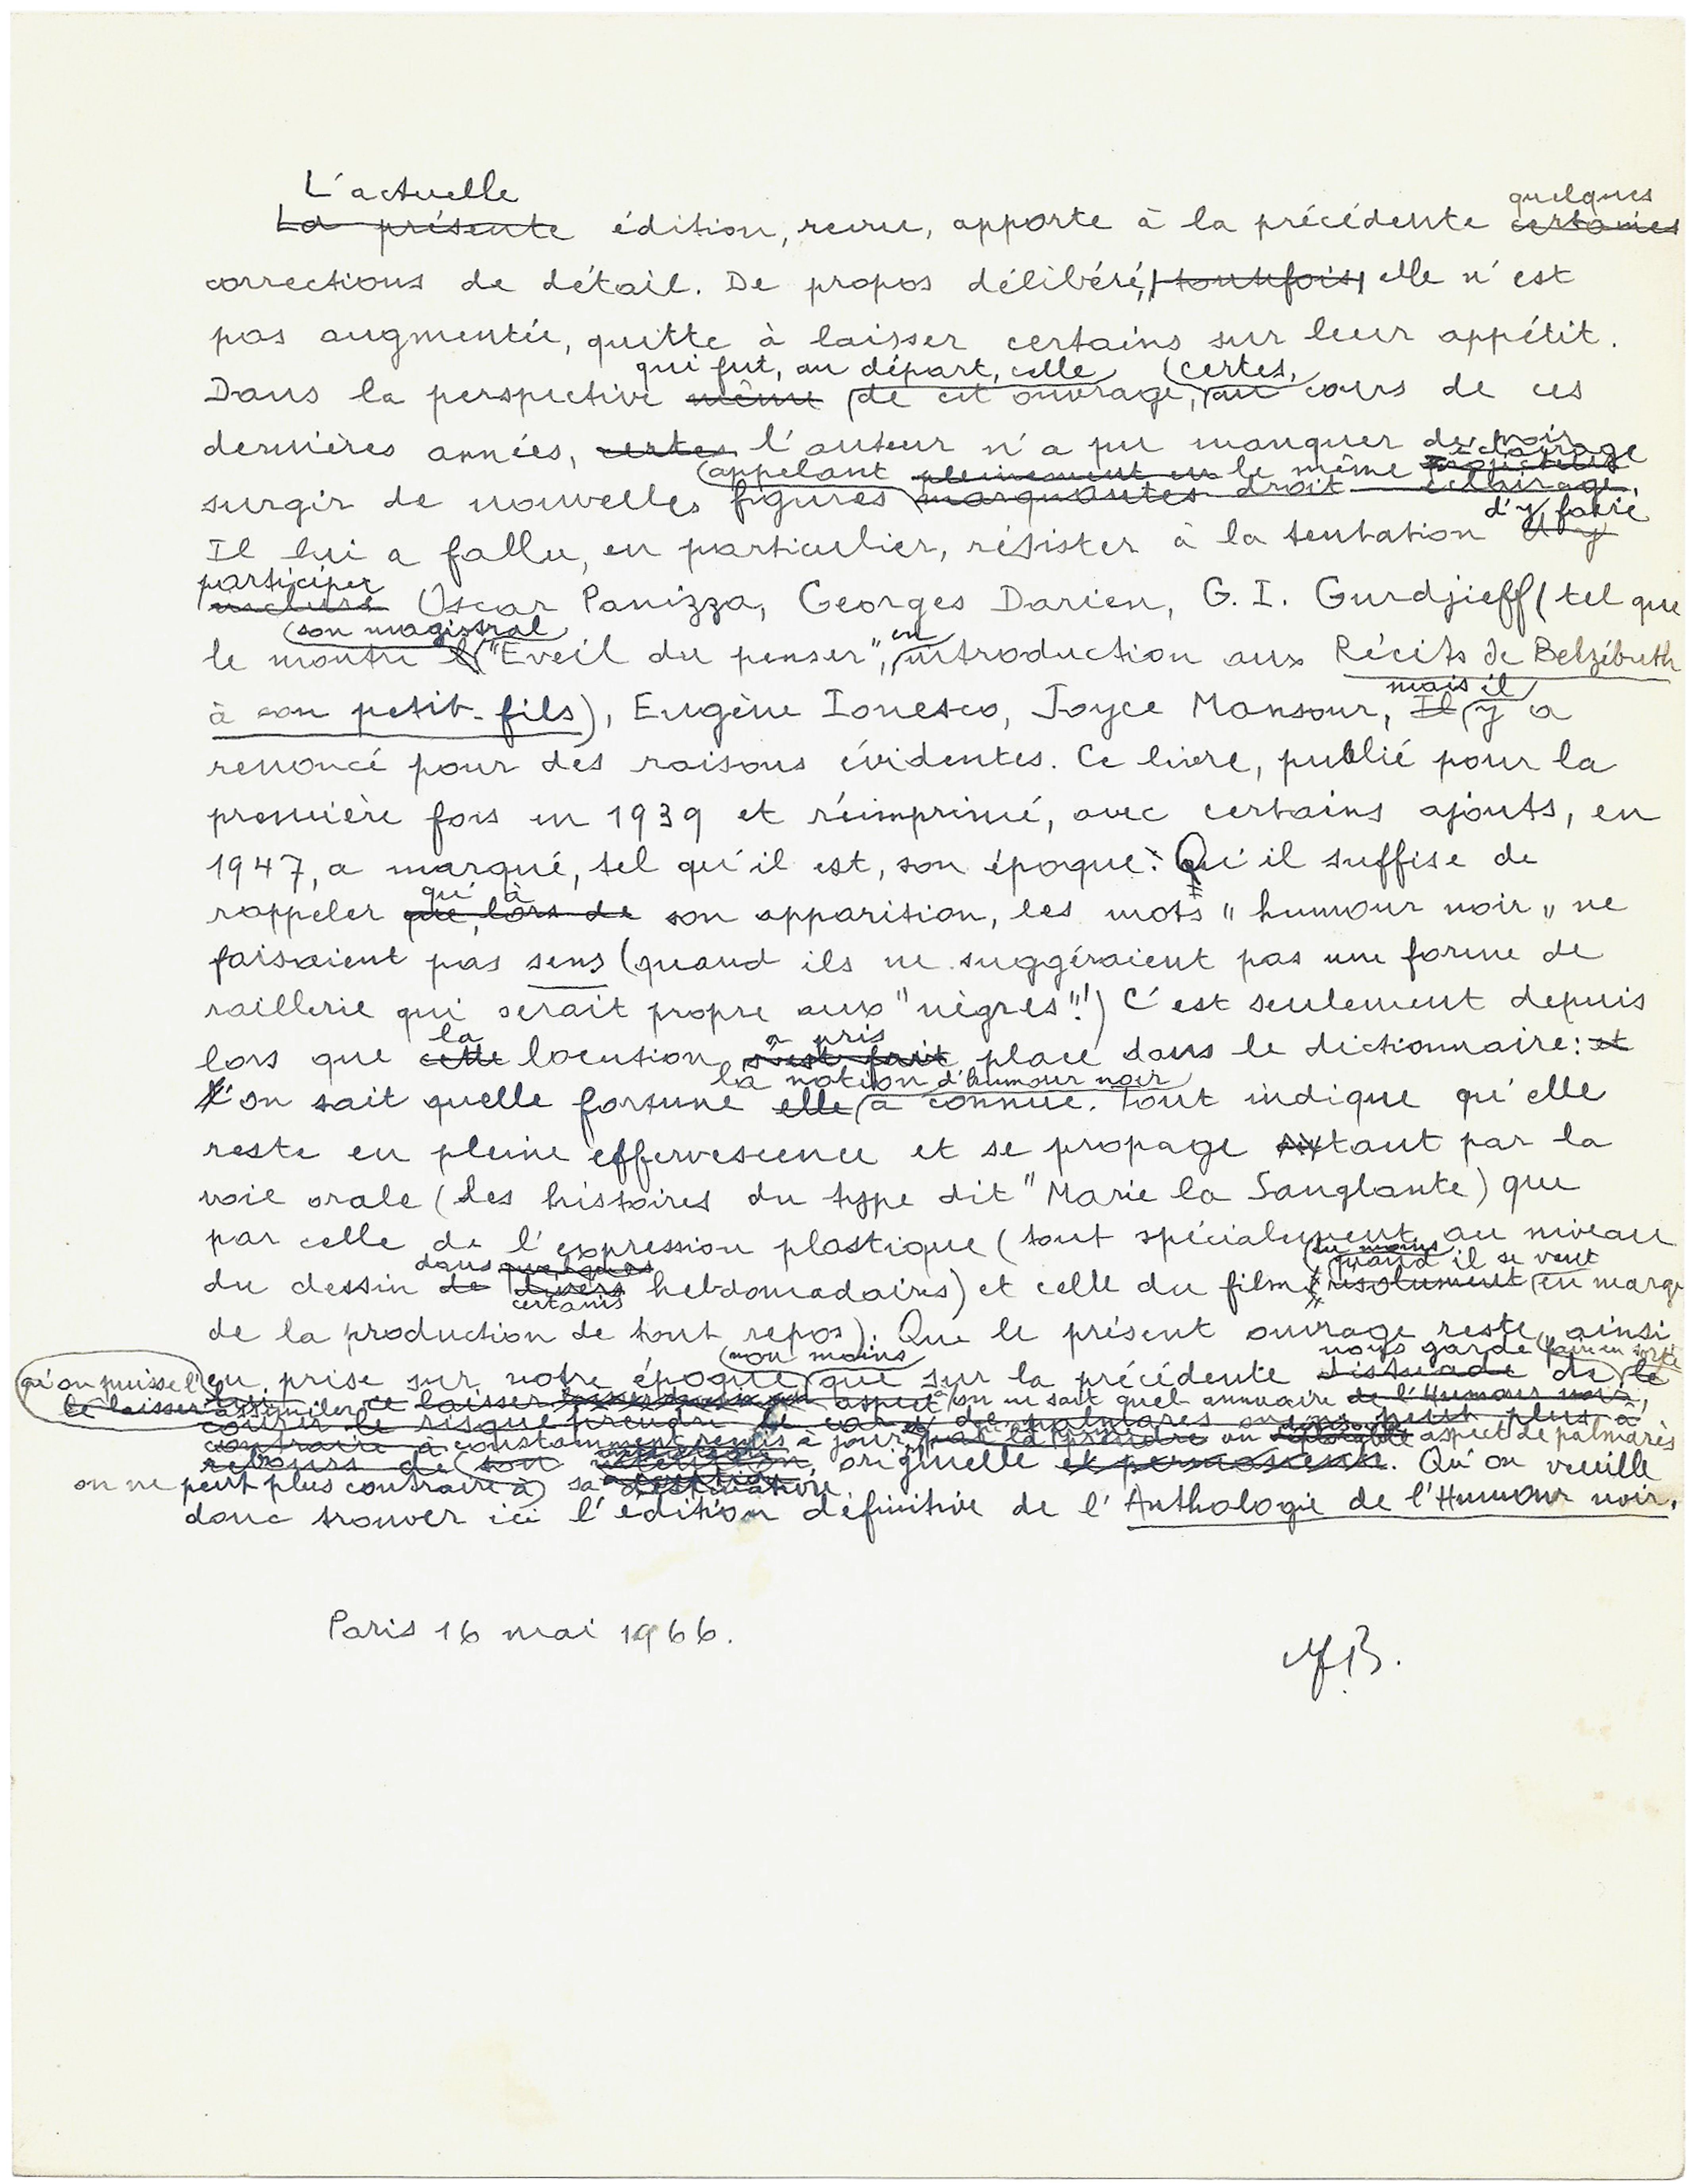 L'actuelle
La présente édition, revue, apporte à la précédente quelques certaines
corrections de détail. De propos délibéré, toutefois, elle n'est
pas augmentée, quitte à laisser certains sur leur appétit.
qui fut, au départ, celle certes,
Dans la perspective même de cet ouvrage, au cours de ces
dernières années, certes l'auteur n'a pu manquer de voir
appelant pleinement le même éclairage
surgir de nouvelles figures marquantes droit éclairage.
d'y faire
Il lui a fallu, en particulier, résister à la tentation d'y
participer
inclure Oscar Panizza, Georges Darien, G. I. Gurdjieff (tel que
son magistral en
le montre l' "Eveil du penser", introduction aux Récits de Belzébuth
mais il
à son petit-fils), Eugène Ionesco, Joyce Mansour, Il y a
renoncé pour des raisons évidentes. Ce livre, publié pour la
première fois en 1939 et réimprimé, avec certains ajouts, en
1947, a marqué, tel qu'il est, son époque. Qu'il suffise de
qu' à
rappeler que, lors de son apparition, les mots "humour noir" ne
faisaient pas sens (quand ils ne suggéraient pas une forme de
raillerie qui serait propre aux "nègres"!) C'est seulement depuis
la a pris
lors que cette locution s'est fait place dans le dictionnaire: et
la notion d'humour noir
l'on sait quelle fortune elle a connue. Tout indique qu'elle
reste en pleine effervescence et se propage tant par la
voie orale (les histoires du type dit "Marie la Sanglante) que
par celle de l'expression plastique (tout spécialement au niveau
dans quelques au moins quand il se veut
du dessin de divers hebdomadaires) et celle du film résolument en marge
certains
de la production de tout repos). Que le présent ouvrage reste ainsi
non moins nous garde faire en sorte
en prise sur notre époque que sur la précédente dissuade de le
qu'on puisse l'
le laisser assimiler ce laisser aspect à on ne sait quel annuaire de l'Humour noir,
courir le risque prendre de palmarès on ne peut plus à
contraire à constamment remis à jour par là prendre un aspect de palmarès
rebours de son intention originelle et permanente. Qu'on veuille
on ne peut plus contraire à sa destination.
donc trouver ici l'édition définitive de l'Anthologie de l'Humour noir.
Paris 16 mai 1966.
AB.